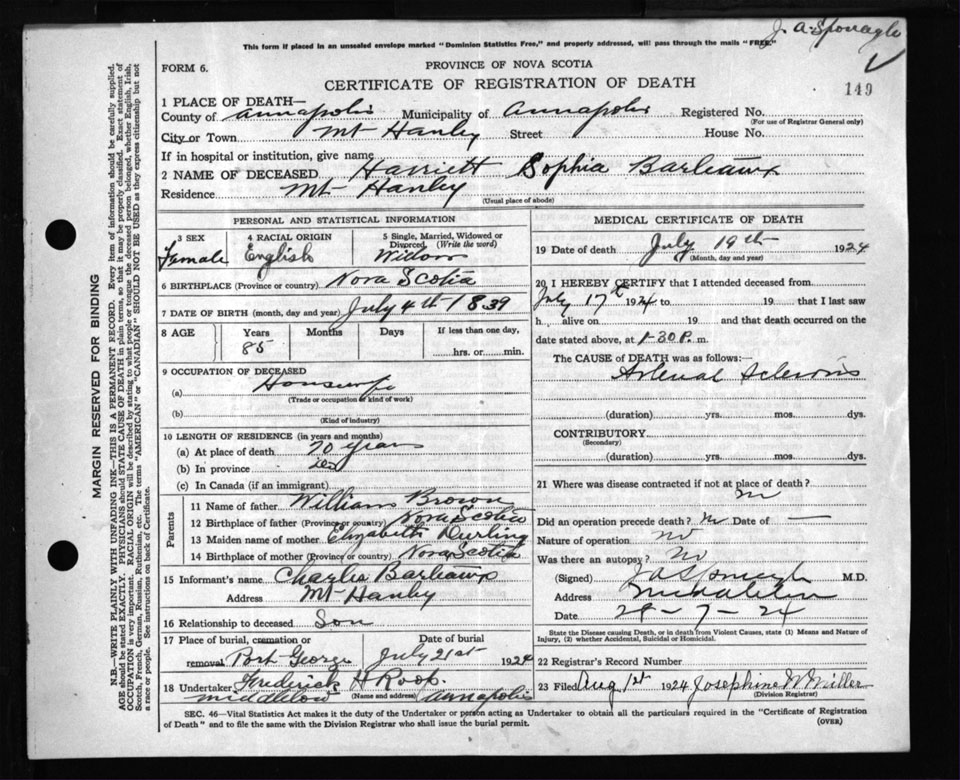 J. A. Sponagle
This form if placed in an unsealed envelope marked "Dominion Statistics Free," and properly addressed, will pass through the mails "FREE."
FORM 6.
PROVINCE OF NOVA SCOTIA
149
CERTIFICATE OF REGISTRATION OF DEATH
1 PLACE OF DEATH—
County of Annapolis Municipality of Annapolis Registered No.
(For use of Registrar General only)
City or Town Mt Hanley Street House No.
If in hospital or institution, give name
2 NAME OF DECEASED Harriett Sophia Barteaux
Residence Mt Hanley
(Usual place of abode)
PERSONAL AND STATISTICAL INFORMATION
3 SEX 4 RACIAL ORIGIN 5 Single, Married, Widowed or Divorced (Write the word)
Female English Widow
6 BIRTHPLACE (Province or country) Nova Scotia
7 DATE OF BIRTH (month, day and year) July 4th 1839
8 AGE Years Months Days If less than one day,
85 hrs. or min.
9 OCCUPATION OF DECEASED
(a) Housewife
(Trade or occupation or kind of work)
(b)
(Kind of industry)
10 LENGTH OF RESIDENCE (in years and months)
(a) At place of death 70 years
(b) In province
(c) In Canada (if an immigrant)
Parents
11 Name of father William Brown
12 Birthplace of father (Province or country) Nova Scotia
13 Maiden name of mother Elizabeth Durling
14 Birthplace of mother (Province or country) Nova Scotia
15 Informant's name Charlie Barteaux
Address Mt Hanley
16 Relationship to deceased Son
17 Place of burial, cremation or Date of burial
removal Port George July 21st 1924
18 Undertaker Frederick H Roop.
Middleton (Name and address) Annapolis
MEDICAL CERTIFICATE OF DEATH
19 Date of death July 19th 1924
(Month, day and year)
20 I HEREBY CERTIFY that I attended deceased from
July 17th 1924 to 19 that I last saw
h alive on 19 and that death occurred on the
date stated above, at 1-30 P. m.
The CAUSE of DEATH was as follows:—
Arterial Sclerosis
(duration) yrs. mos. dys.
CONTRIBUTORY
(Secondary)
(duration) yrs. mos. dys.
21 Where was disease contracted if not at place of death?
Did an operation precede death? Date of —
Nature of operation no
Was there an autopsy? No
(Signed) J A Sponagle M.D.
Address Middleton
Date 29-7-24
State the Disease causing Death, or in death from Violent Causes, state (1) Means and Nature of
Injury, (2) whether Accidental, Suicidal or Homicidal.
22 Registrar's Record Number
23 Filed Aug 1st 1924 Josephine W Miller
(Division Registrar)
SEC. 46—Vital Statistics Act makes it the duty of the Undertaker or person acting as Undertaker to obtain all the particulars required in the "Certificate of Registration
of Death" and to file the same with the Division Registrar who shall issue the burial permit.
(OVER)
MARGIN RESERVED FOR BINDING
N.B.—WRITE PLAINLY WITH UNFADING INK—THIS IS A PERMANENT RECORD. Every item of information should be carefully supplied.
AGE should be stated EXACTLY. PHYSICIANS should STATE CAUSE OF DEATH in plain terms, so that it may be properly classified. Exact statement of
OCCUPATION is very important. RACIAL ORIGIN will be described by stating to what people or tongue the deceased person belonged, whether English, Irish,
Scotch, French, German, Russian, Ruthenian, etc. The terms "AMERICAN" or "CANADIAN" SHOULD NOT BE USED as they express citizenship but not
a race or people. See instructions on back of Certificate.